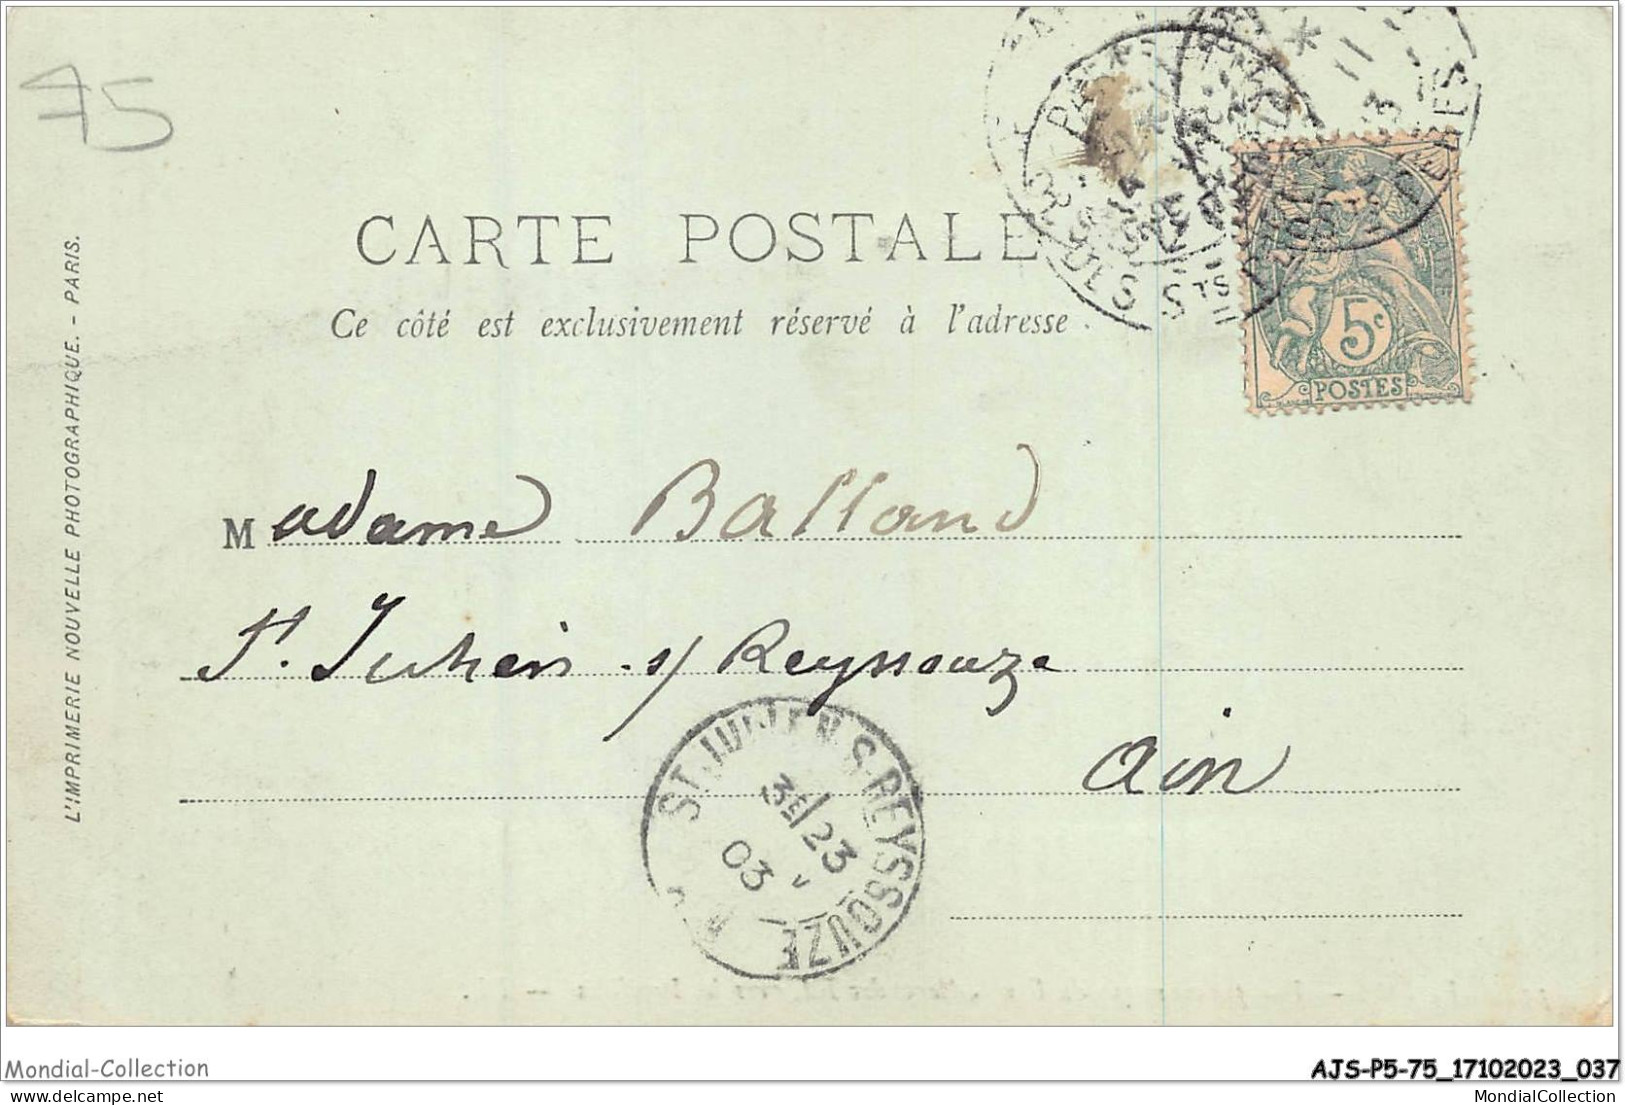 75
CARTE POSTALE
Ce côté est exclusivement réservé à l'adresse.
5c
POSTES
L'IMPRIMERIE NOUVELLE PHOTOGRAPHIQUE. - PARIS.
Madame Balland
St. Julien s/ Reyssouze
Ain
ST JULIEN S. REYSSOUZE
3E/23
03
Mondial-Collection
AJS-P5-75_17102023_037
MondialCollection